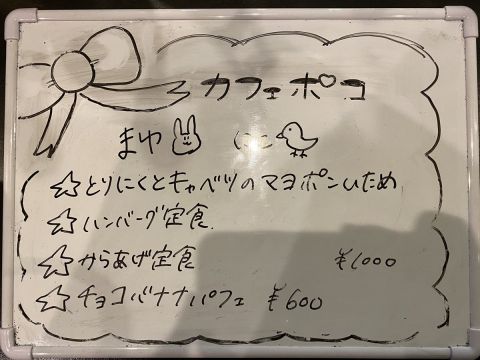 カフェポコ
まゆ にこ
☆とりにくとキャベツのマヨポンいため
☆ハンバーグ定食
☆からあげ定食 ¥1000
☆チョコバナナパフェ ¥600